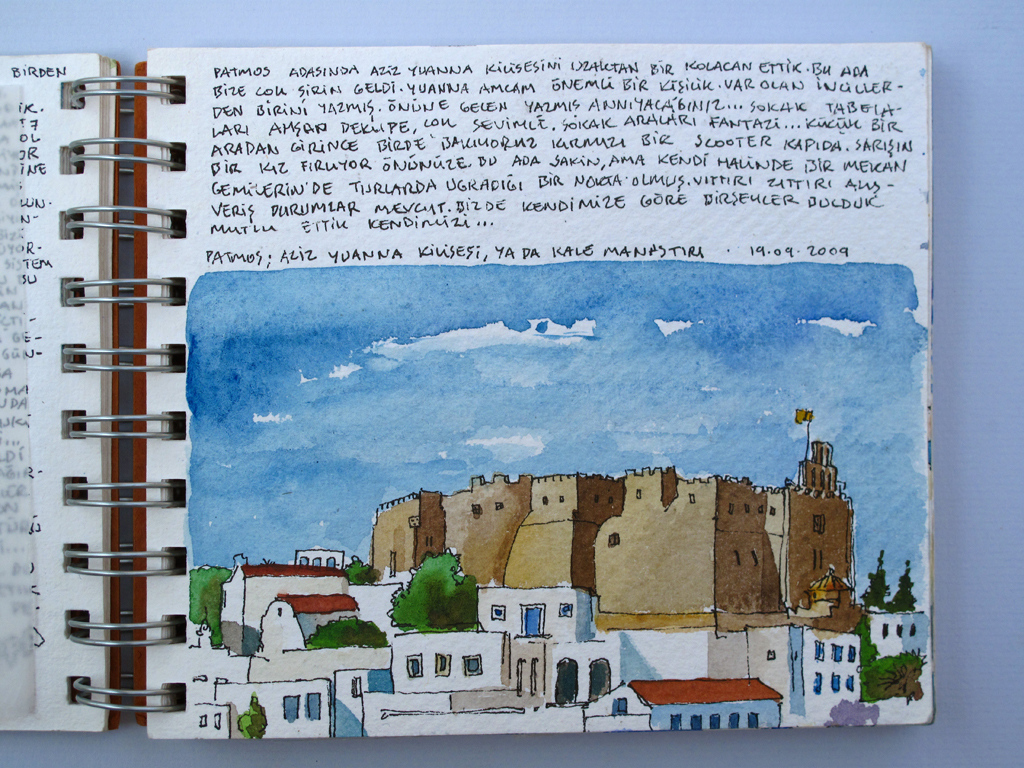 BİRDEN
PATMOS ADASINDA AZİZ YUANNA KİLİSESİNİ UZAKTAN BİR KOLAÇAN ETTİK. BU ADA
BİZE ÇOK ŞİRİN GELDİ. YUANNA AMCAM ÖNEMLİ BİR KİŞİLİK. VAR OLAN İNCİLLER-
DEN BİRİNİ YAZMIŞ. ÖNÜNE GELEN YAZMIŞ ANNIYACAĞINIZ... SOKAK TABELA-
LARI AHŞAP DEKUPE, ÇOK SEVİMLİ. SOKAK ARALARI FANTAZİ... KÜÇÜK BİR
ARADAN GİRİNCE BİRDE BAKIYORUZ KIRMIZI BİR SCOOTER KAPIDA. SARIŞIN
BİR KIZ FIRLIYOR ÖNÜNÜZE. BU ADA SAKİN, AMA KENDİ HALİNDE BİR MEKAN
GEMİLERİN'DE TURLARDA UĞRADIĞI BİR NOKTA OLMUŞ. VITTIRI ZITTIRI ALIŞ-
VERİŞ DURUMLAR MEVCUT. BİZDE KENDİMİZE GÖRE BİRŞEYLER BULDUK
MUTLU ETTİK KENDİMİZİ...
PATMOS; AZİZ YUANNA KİLİSESİ, YA DA KALE MANASTIRI . 19.09.2009